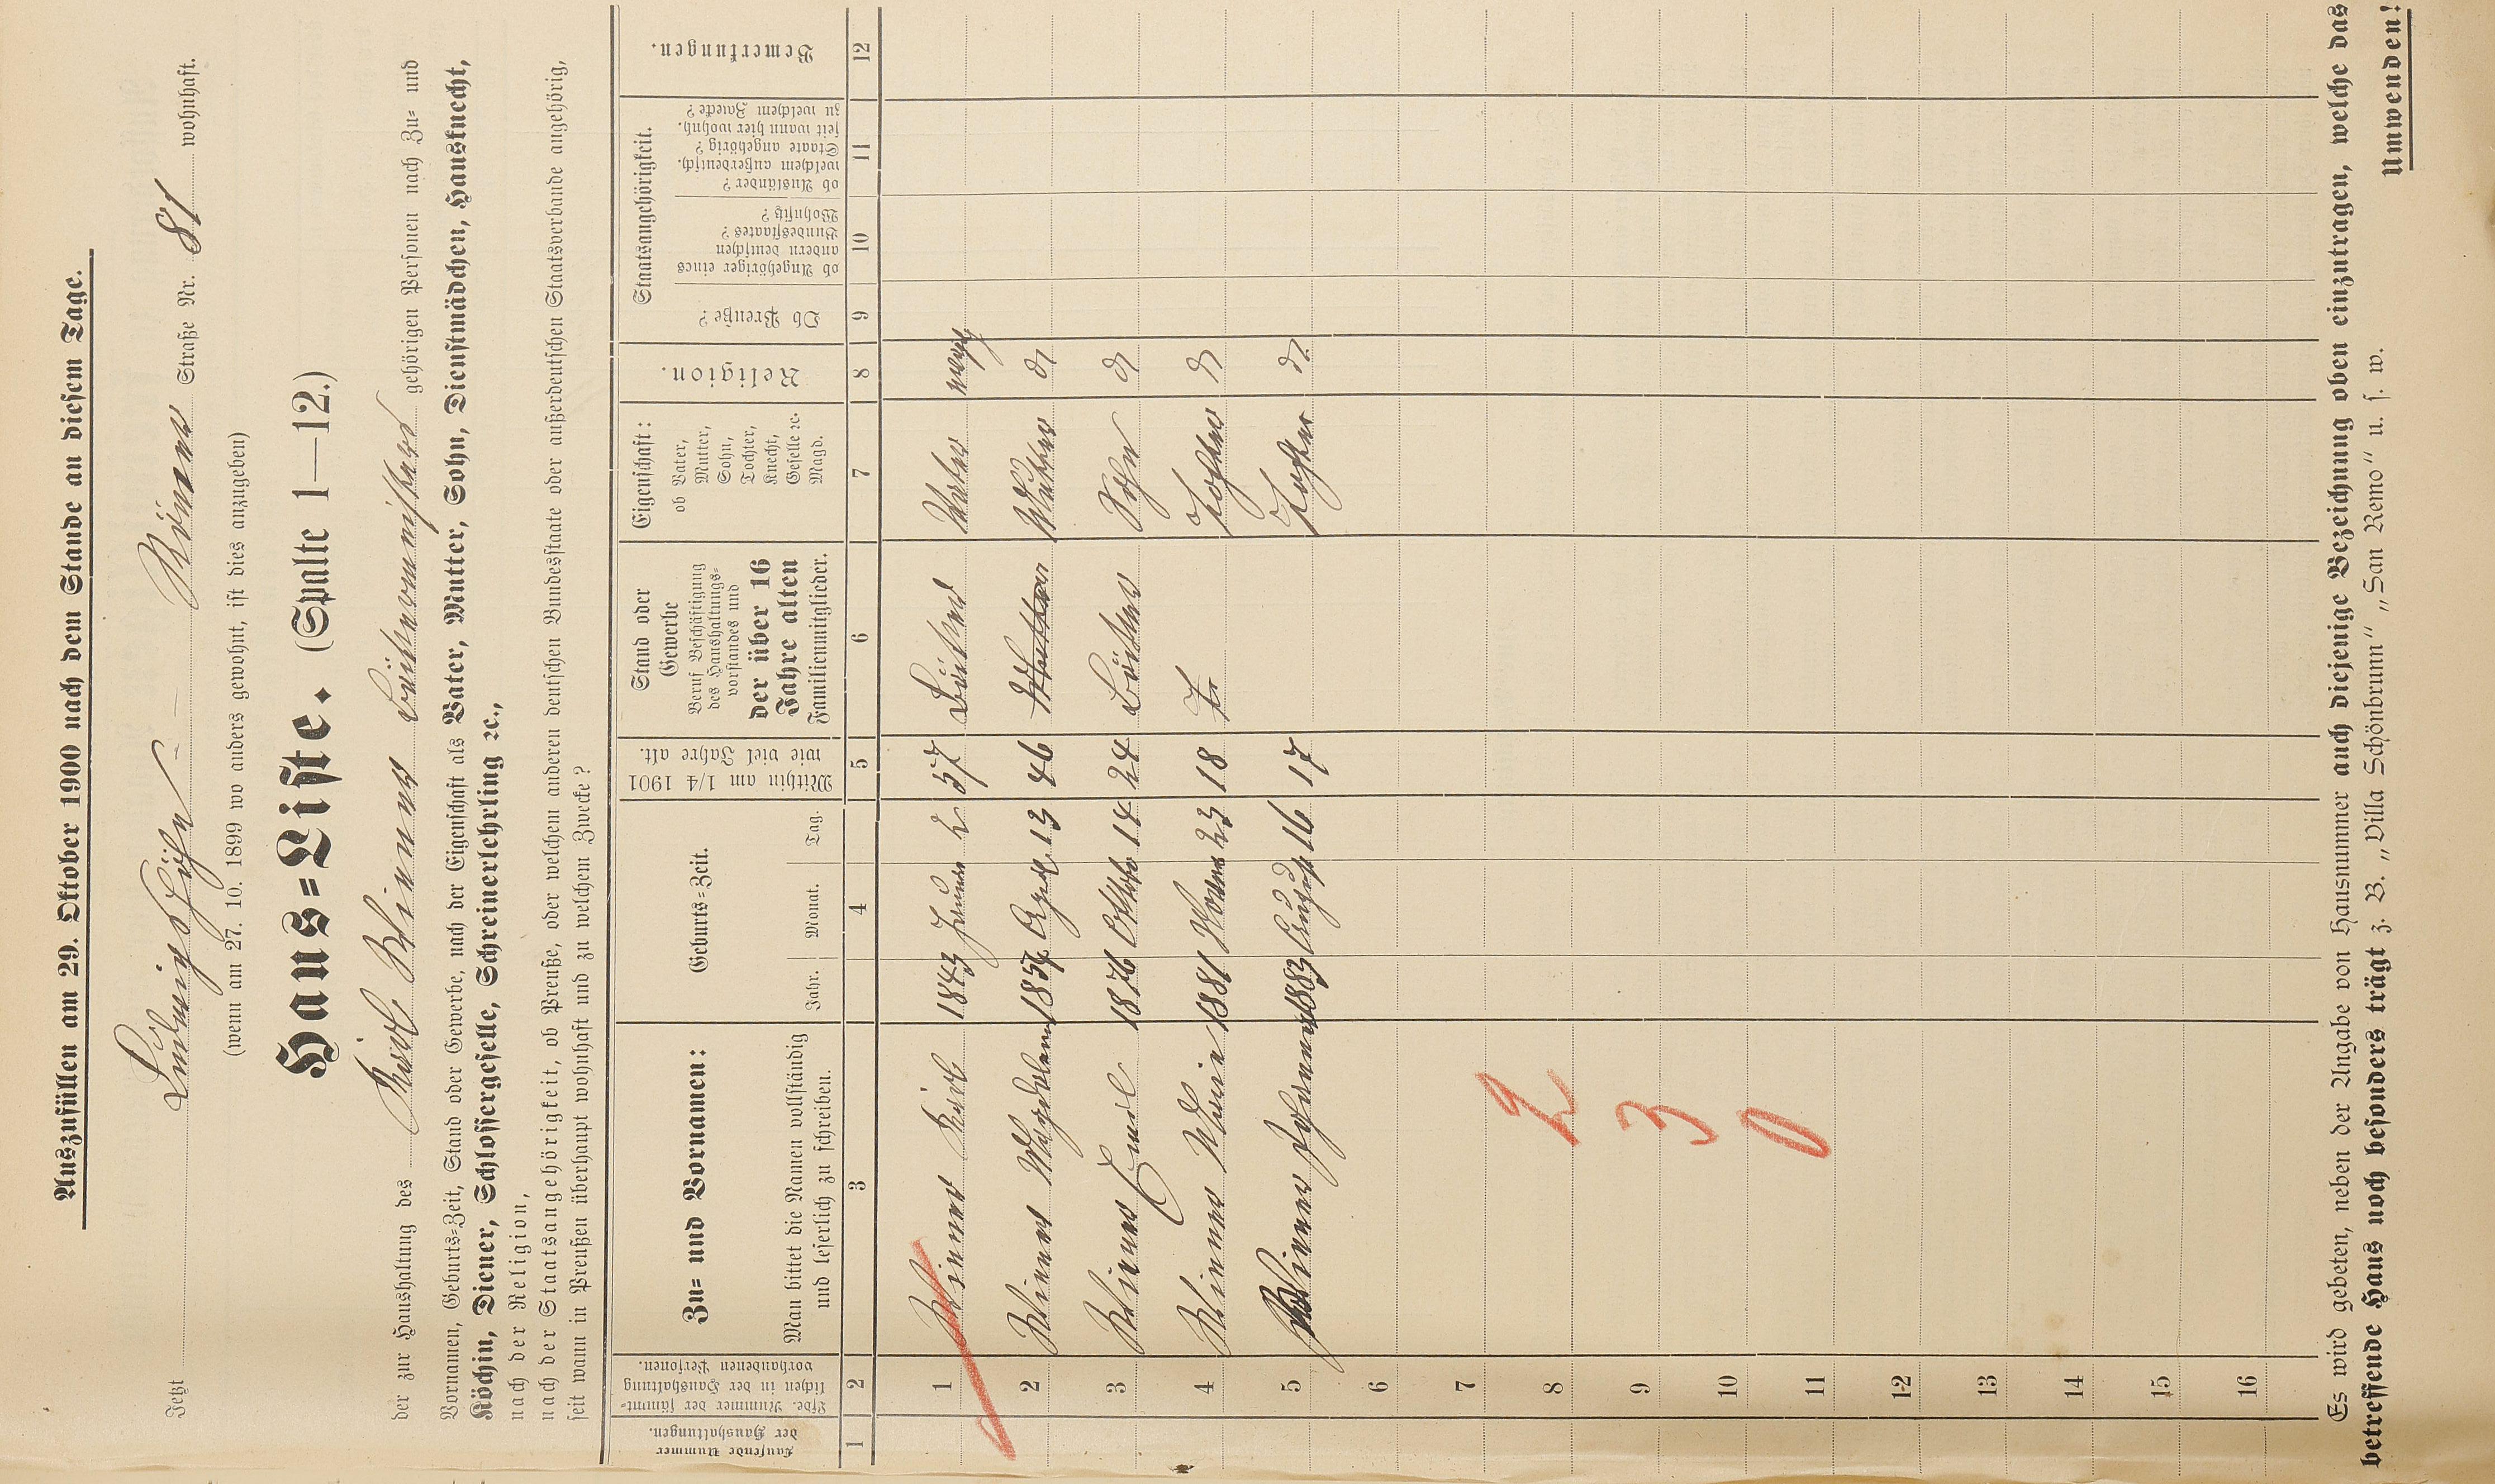 Auszufüllen am 29. Oktober 1900 nach dem Stande an diesem Tage.
Jetzt Ludwigshöhe Straße Nr. 81 wohnhaft.
(wenn am 27. 10. 1899 wo anders gewohnt, ist dies anzugeben)
Haus=Liste. (Spalte 1—12.)
der zur Haushaltung des Karl gehörigen Personen nach Zu= und
Vornamen, Geburts=Zeit, Stand oder Gewerbe, nach der Eigenschaft als Vater, Mutter, Sohn, Dienstmädchen, Hausknecht,
Köchin, Diener, Schlossergeselle, Schreinerlehrling ꝛc.,
nach der Religion,
nach der Staatsangehörigkeit, ob Preuße, oder welchem anderen deutschen Bundesstaate oder außerdeutschen Staatsverbande angehörig,
seit wann in Preußen überhaupt wohnhaft und zu welchem Zwecke?
Laufende Nummer der Haushaltungen.
Lfde. Nummer der sämmt=lichen in der Haushaltung vorhandenen Personen.
Zu= und Vornamen:
Man bittet die Namen vollständig und leserlich zu schreiben.
Geburts=Zeit.
Jahr. Monat. Tag.
Mithin am 1/4 1901 wie viel Jahre alt.
Stand oder Gewerbe
Beruf Beschäftigung des Haushaltungs=vorstandes und
der über 16 Jahre alten Familienmitglieder.
Eigenschaft:
ob Vater, Mutter, Sohn, Tochter, Knecht, Geselle ꝛc. Magd.
Religion.
Staatsangehörigkeit.
Ob Preuße?
ob Angehöriger eines andern deutschen Bundesstaates? Wohnsitz?
ob Ausländer? welchem außerdeutsch. Staate angehörig? seit wann hier wohnh. zu welchem Zwecke?
Bemerkungen.
1 2 3 4 5 6 7 8 9 10 11 12
1 Karl 1843 Januar 2 57 Vater
2 Magdalena 1854 April 13 46 Mutter Mutter d
3 Emil 1876 Oktober 14 24 Sohn d
4 Marie 1881 23 18 Tochter d
5 Johanna 1883 August 16 17 Tochter d
6
7
8
9
10
11
12
13
14
15
16
2
3
0
Es wird gebeten, neben der Angabe von Hausnummer auch diejenige Bezeichnung oben einzutragen, welche das
betreffende Haus noch besonders trägt z. B. „Villa Schönbrunn“ „San Remo“ u. s. w.
Umwenden!